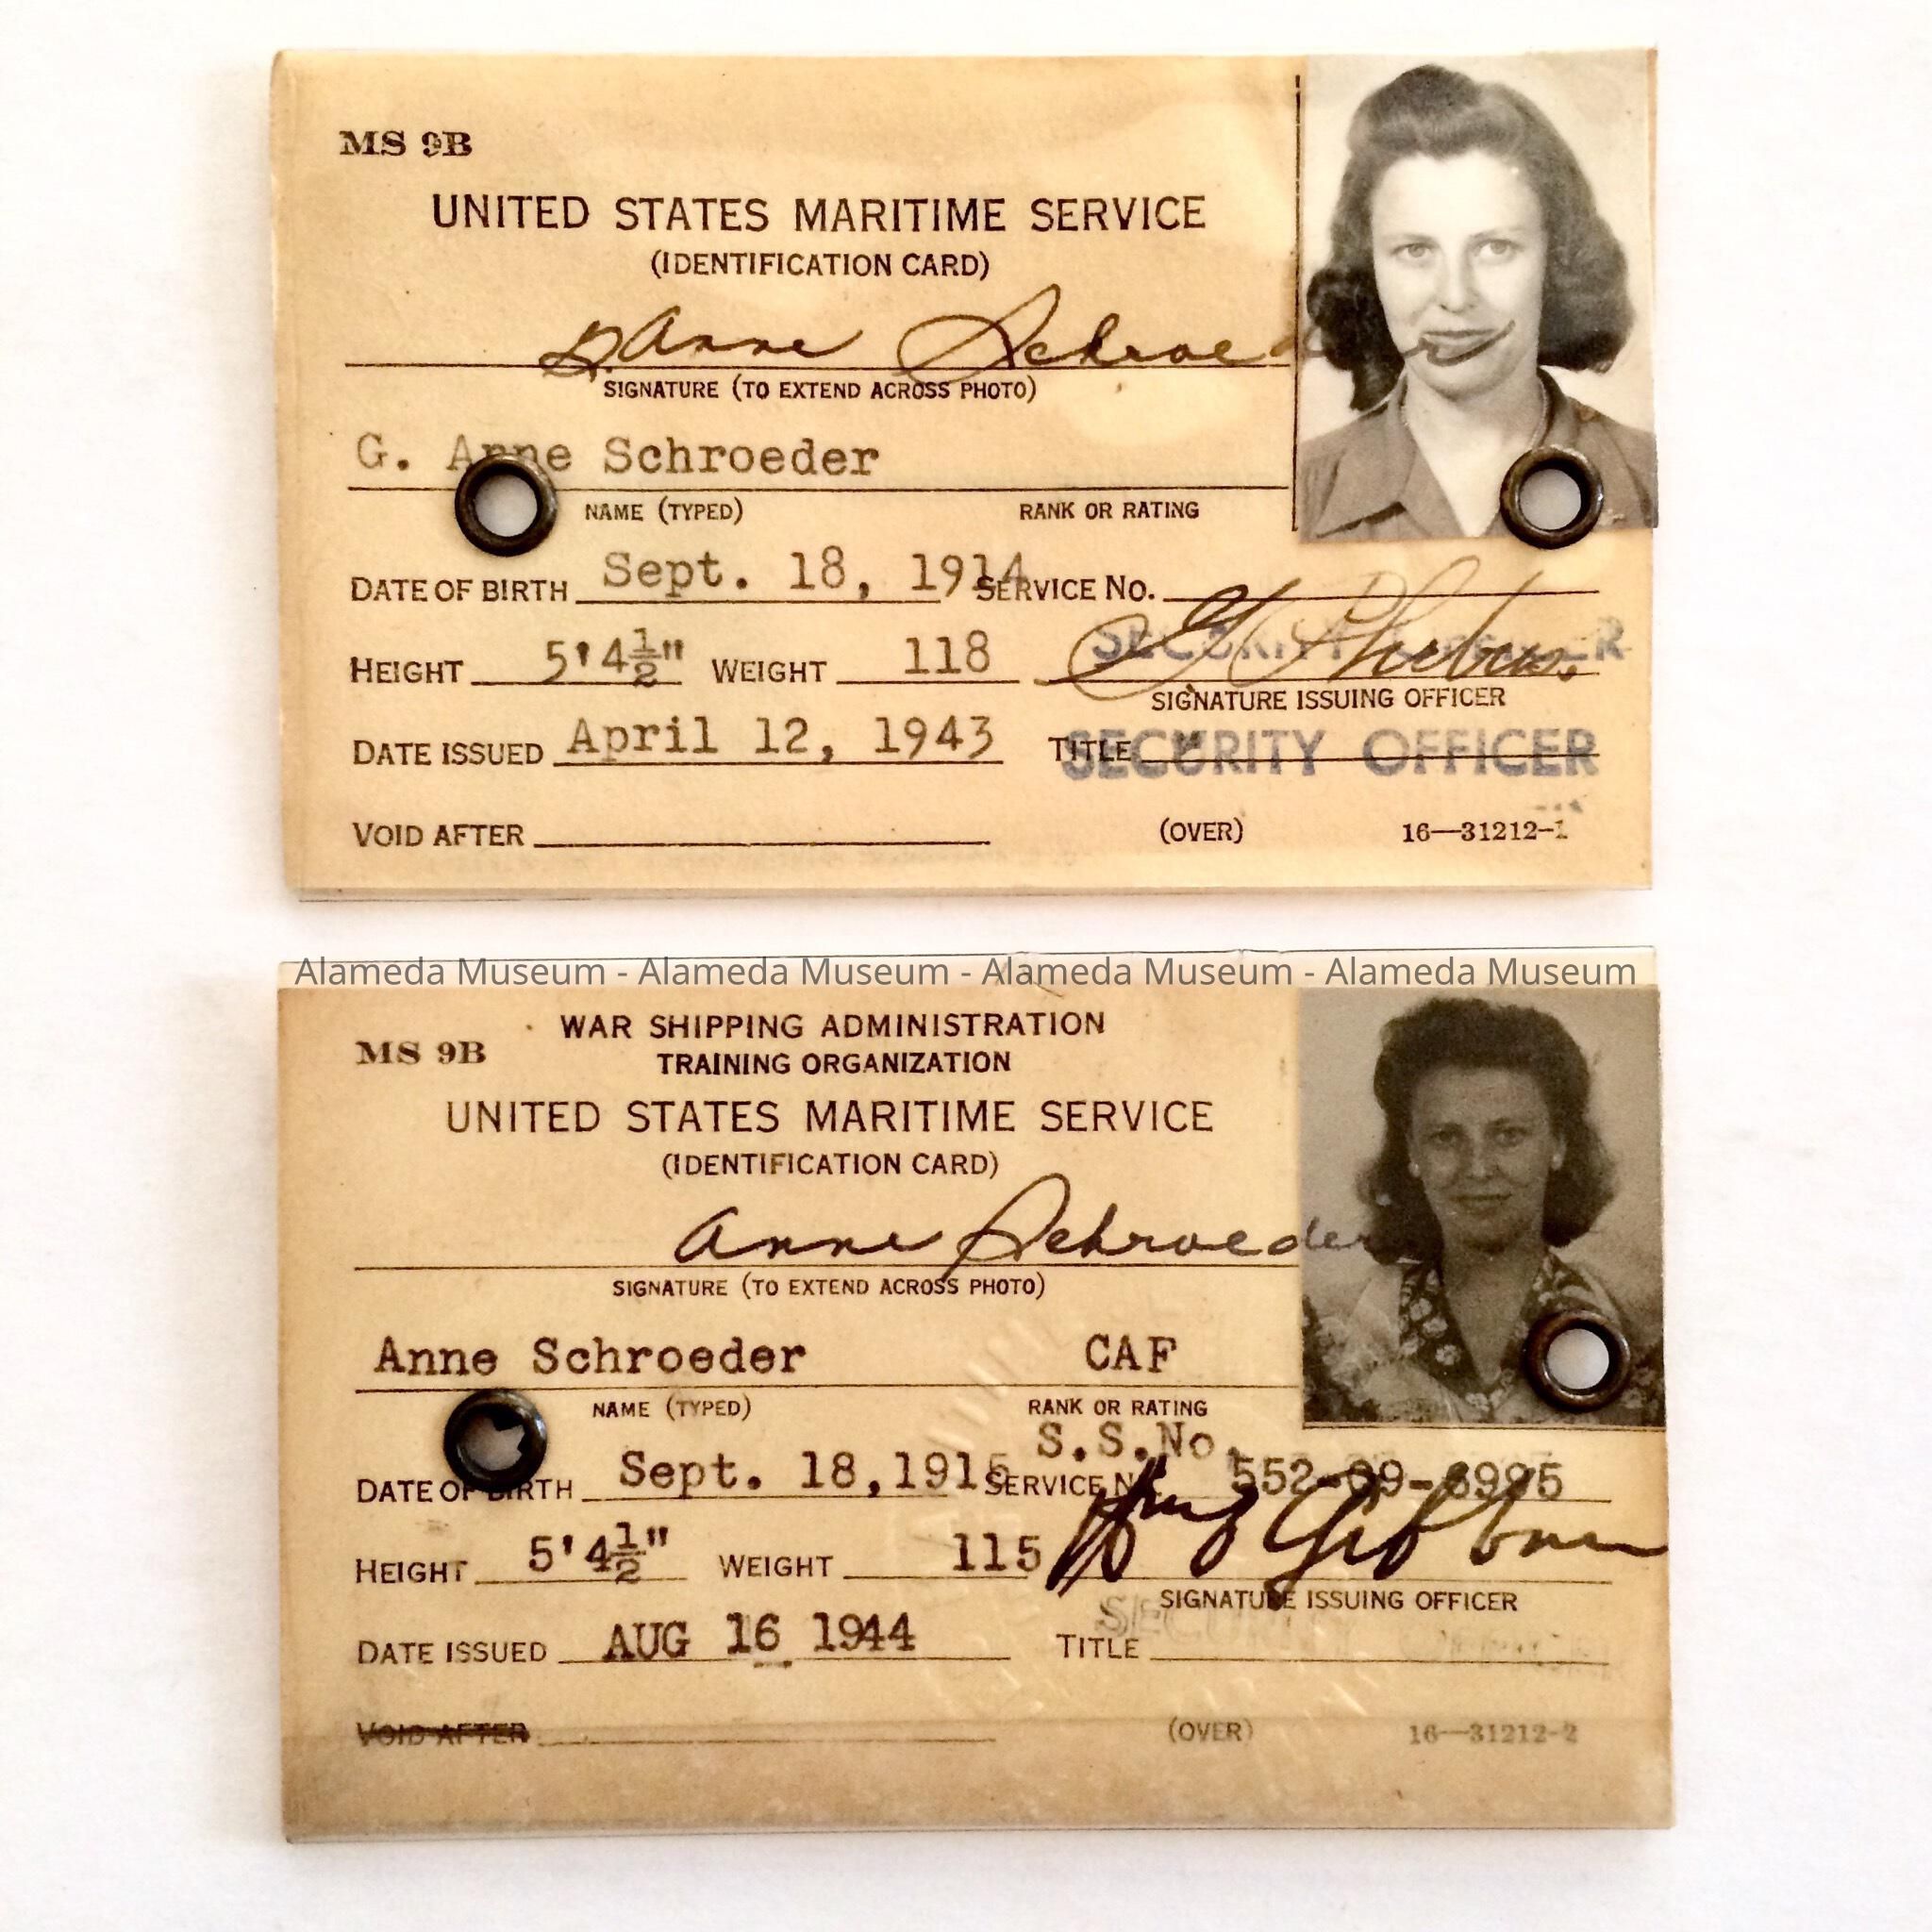 MS 9B
UNITED STATES MARITIME SERVICE
(IDENTIFICATION CARD)
G. Anne Schroeder
SIGNATURE (TO EXTEND ACROSS PHOTO)
G. Anne Schroeder
NAME (TYPED) RANK OR RATING
DATE OF BIRTH Sept. 18, 1914 SERVICE NO.
SECURITY OFFICER
HEIGHT 5'4½" WEIGHT 118
SIGNATURE ISSUING OFFICER
DATE ISSUED April 12, 1943 TITLE SECURITY OFFICER
VOID AFTER (OVER) 16—31212-1
Alameda Museum - Alameda Museum - Alameda Museum - Alameda Museum
WAR SHIPPING ADMINISTRATION
MS 9B TRAINING ORGANIZATION
UNITED STATES MARITIME SERVICE
(IDENTIFICATION CARD)
Anne Schroeder
SIGNATURE (TO EXTEND ACROSS PHOTO)
Anne Schroeder CAF
NAME (TYPED) RANK OR RATING
S.S.No.
DATE OF BIRTH Sept. 18,1915 SERVICE NO. 552-09-8995
HEIGHT 5'4½" WEIGHT 115
SIGNATURE ISSUING OFFICER
SECURITY OFFICER
DATE ISSUED AUG 16 1944 TITLE
VOID AFTER (OVER) 16—31212-2